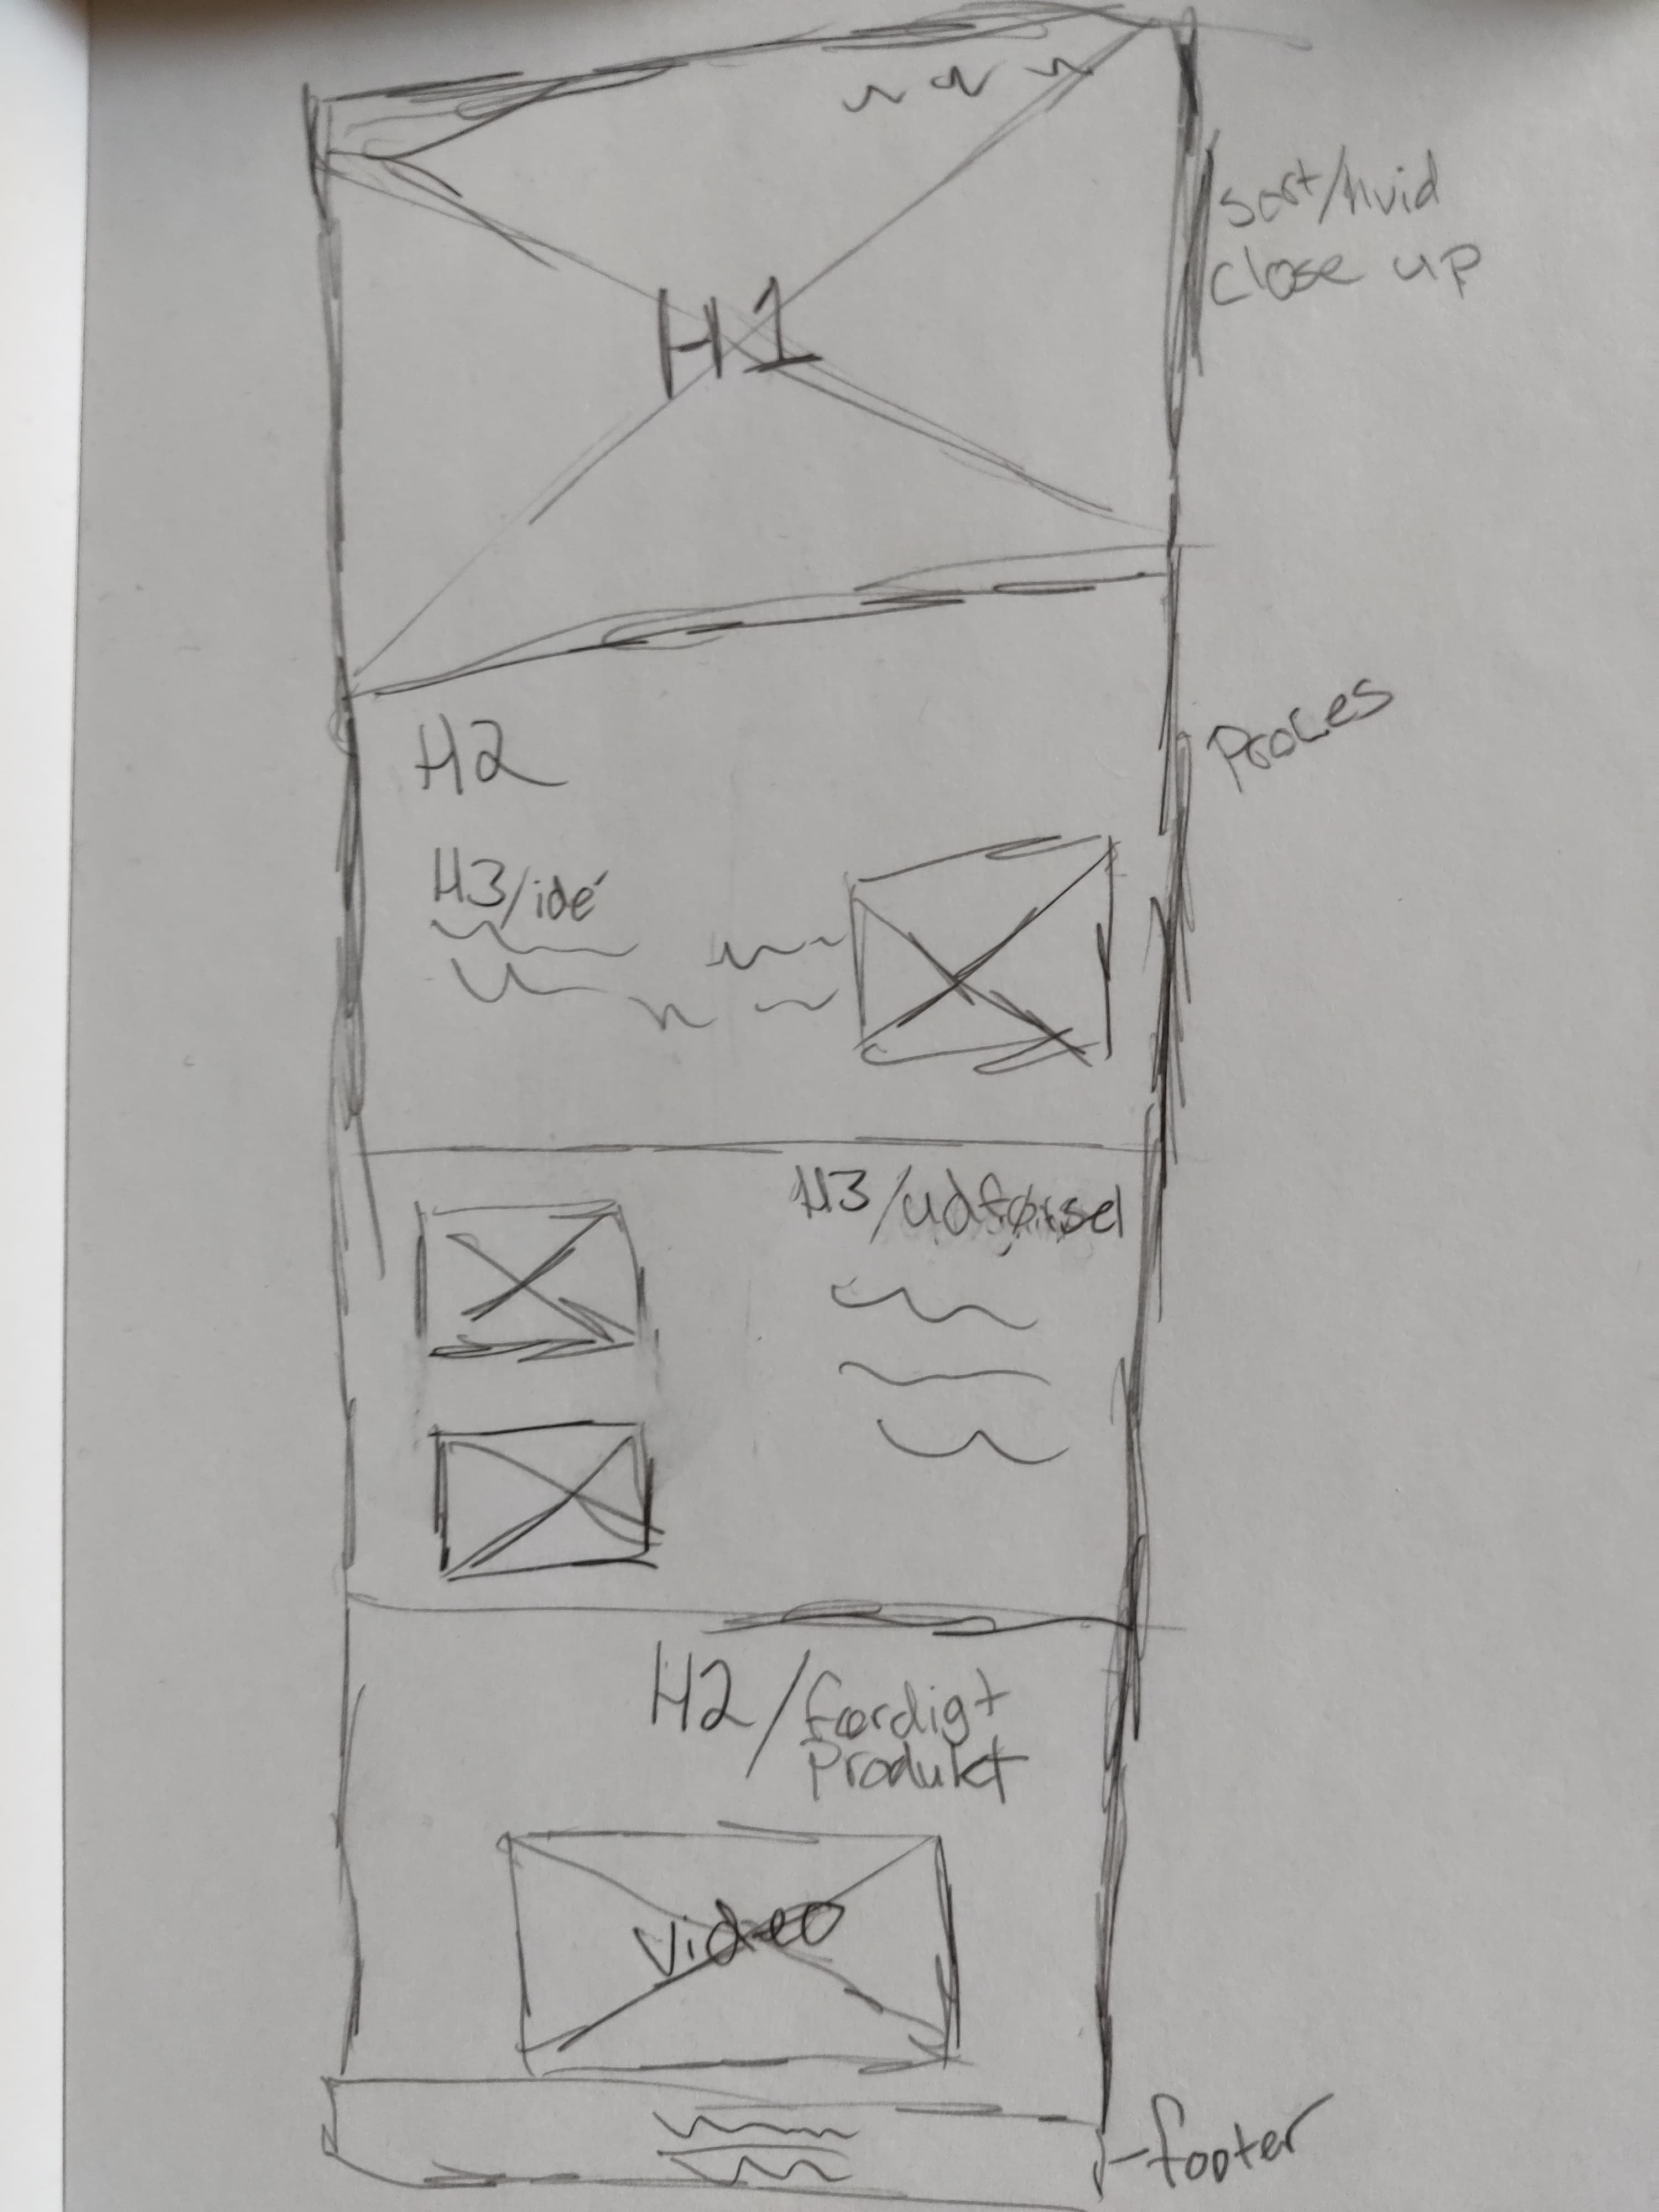 sort/hvid
close up
H1
H2
Proces
H3/idé
H3/udførsel
H2/færdigt
Produkt
video
footer